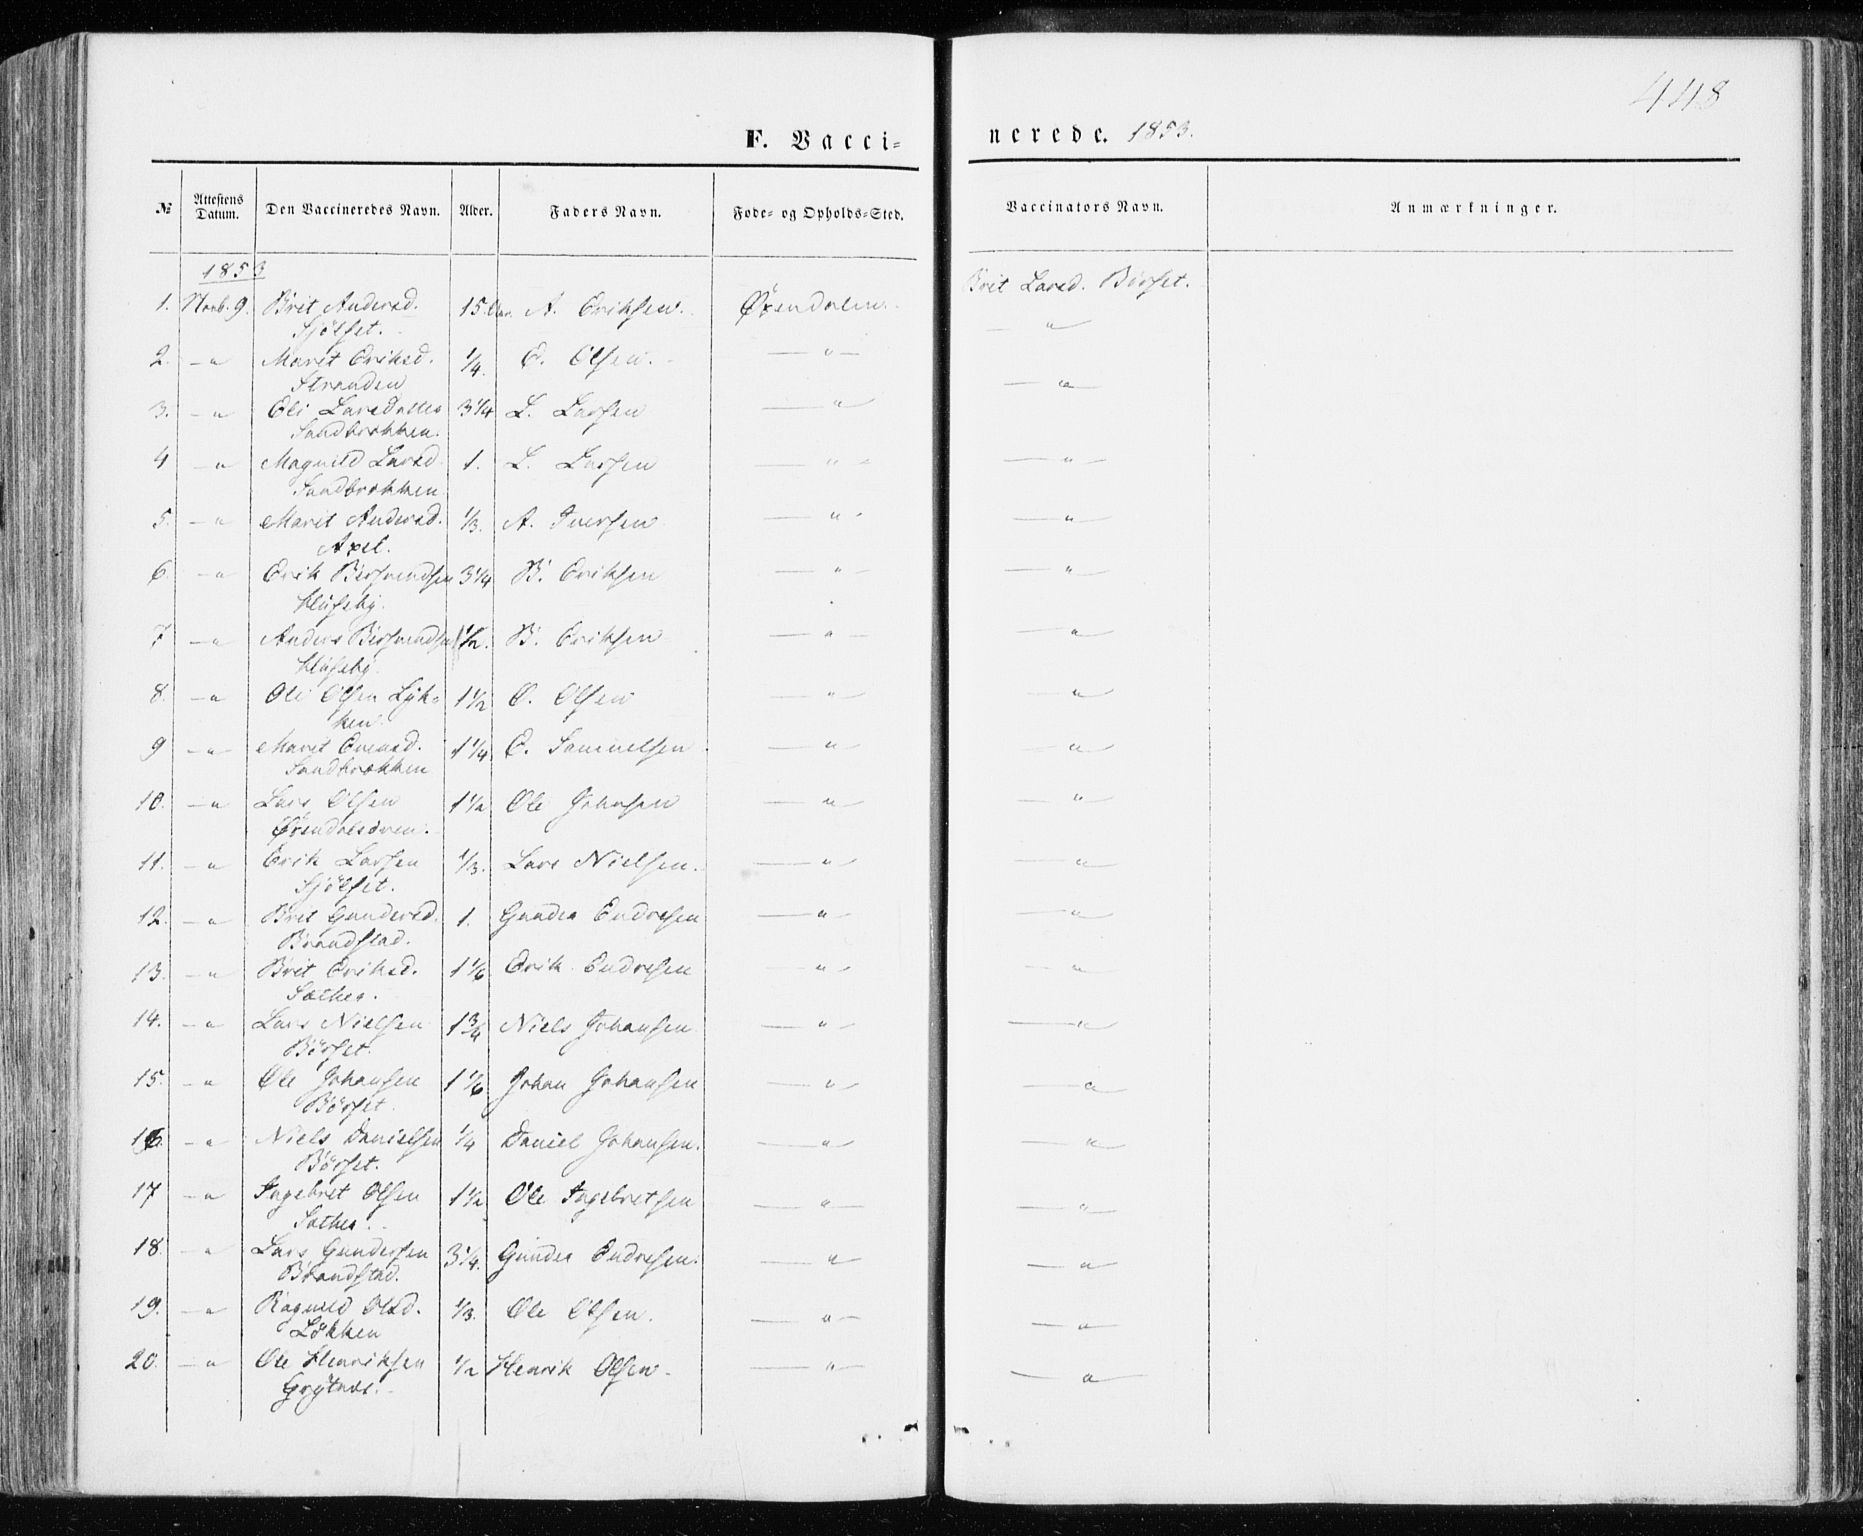 448
F. Vacci=
nerede. 1853.
№ Attestens Datum. Den Vaccineredes Navn. Alder. Faders Navn. Føde- og Opholds-Sted. Vaccinators Navn. Anmærkninger.
1853
1. Novb. 9. Brit Andersd. 15 A. Eriksen. Øxendalen. Brit Larsd. Børset.
Sjölset.
2. —"— Marit Eriksd. 1/4. E. Olsen. —"— —"—
Stranden
3. —"— Eli Larsdatter 3 1/4 L. Larsen —"— —"—
Sandbrækken.
4 —"— Magnild Larsd. 1. L. Larsen —"— —"—
Sandbrækken
5. —"— Marit Andersd. 1/3. A. Iversen —"— —"—
Axel.
6 —"— Erik Bersvendsen 3 1/4 B. Eriksen —"— —"—
Huseby.
7 —"— Anders Bersvendsen 1/2. B. Eriksen —"— —"—
Huseby.
8. —"— Ole Olsen Lyk= 1 1/2 O. Olsen —"— —"—
ken.
9 —"— Marit Evensd. 1 1/4. E. Samuelsen —"— —"—
Sandbrækken
10. —"— Lars Olsen 1 1/2 Ole Johnsen —"— —"—
Øxendalsøren.
11. —"— Erik Larsen 1/3. Lars Nielsen. —"— —"—
Sjölset.
12. —"— Brit Gundersd. 1. Gunder Endresen —"— —"—
Brandstad.
13. —"— Brit Eriksd. 1 1/6. Erik Endresen —"— —"—
Sæther.
14. —"— Lars Nielsen 1 3/4 Niels Johansen —"— —"—
Börset.
15. —"— Ole Johansen 1 1/6 Johan Johansen —"— —"—
Börset.
16. —"— Niels Danielsen 1/4 Daniel Johansen. —"— —"—
Börset.
17 —"— Ingebret Olsen 1 1/2 Ole Ingebretsen —"— —"—
Sæther.
18. —"— Lars Gundersen 3 1/4. Gunder Endresen. —"— —"—
Brandstad.
19. —"— Ragnild Olsd. 1/3. Ole Olsen. —"— —"—
Lökken
20. —"— Ole Henriksen 1/2 Henrik Olsen. —"— —"—
Grytnes.